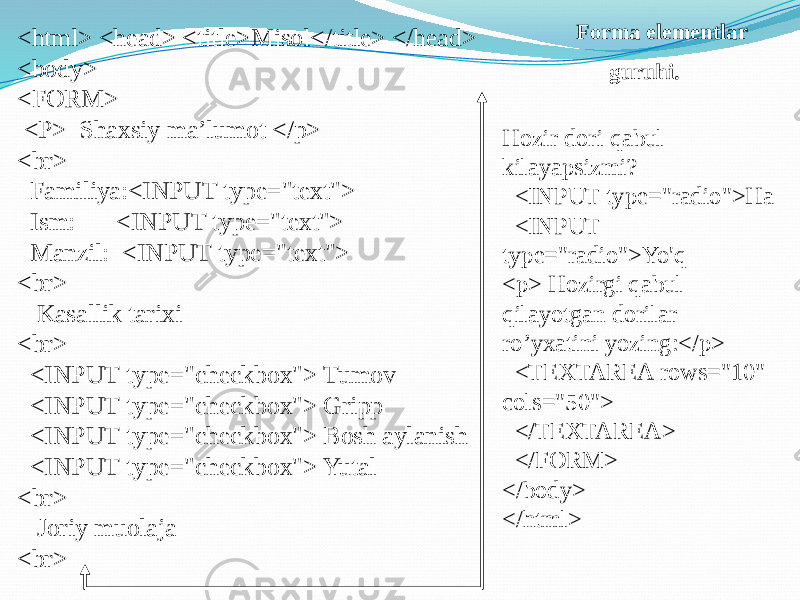 <html> <head> <title>Misol</title> </head>
<body>
<FORM>
<P> Shaxsiy ma’lumot </p>
<br>
Familiya:<INPUT type="text">
Ism: <INPUT type="text">
Manzil: <INPUT type="text">
<br>
Kasallik tarixi
<br>
<INPUT type="checkbox"> Tumov
<INPUT type="checkbox"> Gripp
<INPUT type="checkbox"> Bosh aylanish
<INPUT type="checkbox"> Yutal
<br>
Joriy muolaja
<br>
Forma elementlar
guruhi.
Hozir dori qabul
kilayapsizmi?
<INPUT type="radio">Ha
<INPUT
type="radio">Yo'q
<p> Hozirgi qabul
qilayotgan dorilar
ro’yxatini yozing:</p>
<TEXTAREA rows="10"
cols="50">
</TEXTAREA>
</FORM>
</body>
</html>
ARXIV.UZ
ARXIV.UZ
ARXIV.UZ
ARXIV.UZ